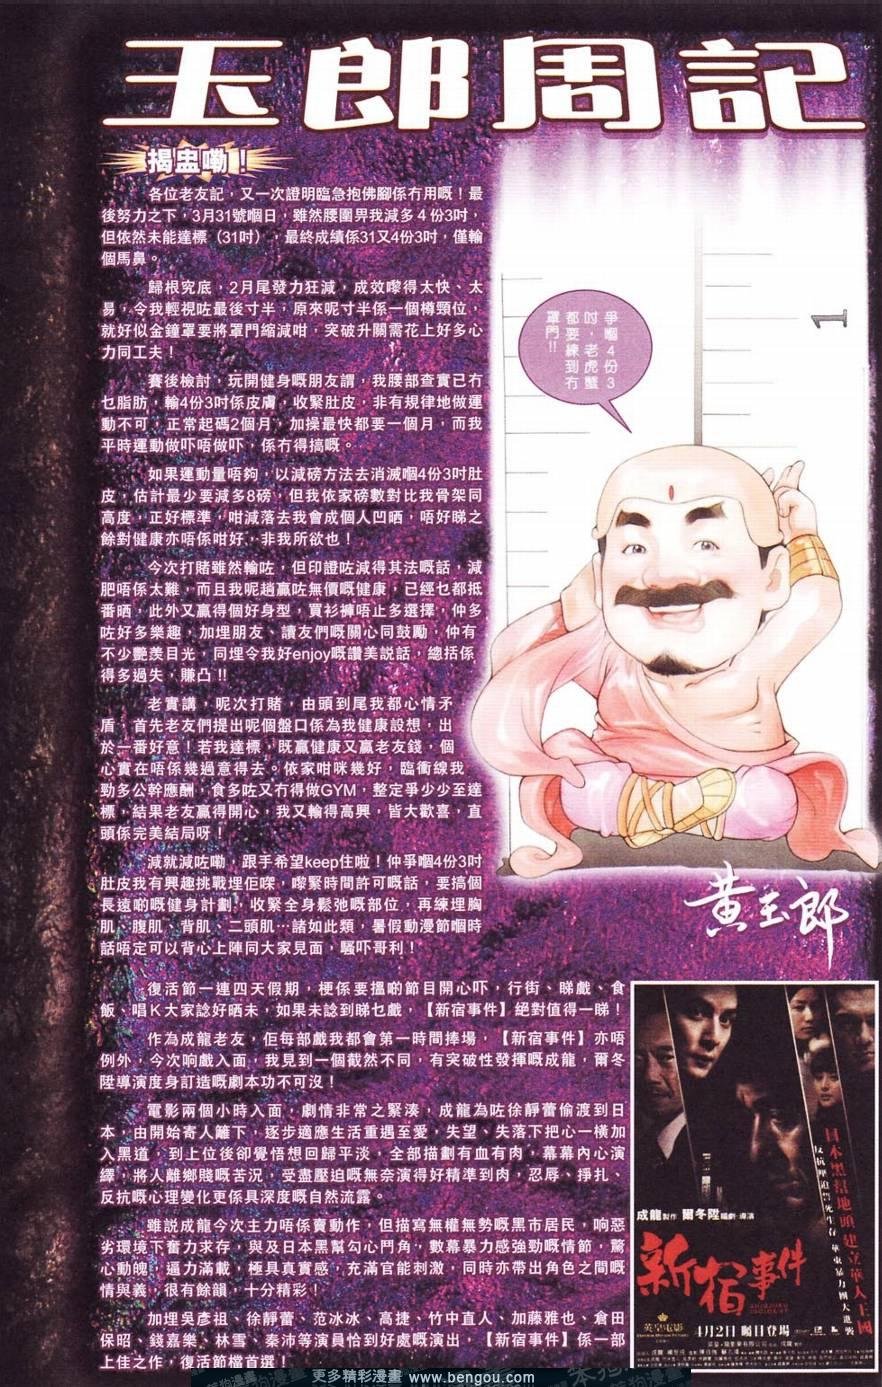 玉郎周記
揭盅嘞！
各位老友記，又一次證明臨急抱佛腳係冇用嘅！最
後努力之下，3月31號嗰日，雖然腰圍畀我減多４份3吋，
但依然未能達標（31吋），最終成績係31又4份3吋，僅輸
個馬鼻。
歸根究底，2月尾發力狂減，成效嚟得太快、太
易，令我輕視咗最後寸半，原來呢寸半係一個樽頸位，
就好似金鐘罩要將罩門縮減咁，突破升關需花上好多心
力同工夫！
賽後檢討，玩開健身嘅朋友謂，我腰部查實已冇
乜脂肪，輸4份3吋係皮膚，收緊肚皮，非有規律地做運
動不可，正常起碼2個月，加操最快都要一個月，而我
平時運動做吓唔做吓，係冇得搞嘅。
如果運動量唔夠，以減磅方法去消滅嗰4份3吋肚
皮，估計最少要減多8磅，但我依家磅數對比我骨架同
高度，正好標準，咁減落去我會成個人凹晒，唔好睇之
餘對健康亦唔係咁好，非我所欲也！
今次打賭雖然輸咗，但印證咗減得其法嘅話，減
肥唔係太難，而且我呢趟贏咗無價嘅健康，已經乜都抵
番晒，此外又贏得個好身型，買衫褲唔止多選擇，仲多
咗好多樂趣，加埋朋友、讀友們嘅關心同鼓勵，仲有
不少艷羨目光，同埋令我好enjoy嘅讚美説話，總括係
得多過失，賺凸 !!
老實講，呢次打賭，由頭到尾我都心情矛
盾，首先老友們提出呢個盤口係為我健康設想，出
於一番好意！若我達標，既贏健康又贏老友錢，個
心實在唔係幾過意得去。依家咁咪幾好，臨衝線我
勁多公幹應酬，食多咗又冇得做GYM，整定爭少少至達
標，結果老友贏得開心，我又輸得高興，皆大歡喜，直
頭係完美結局呀！
減就減咗嘞，跟手希望keep住啦！仲爭嗰4份3吋
肚皮我有興趣挑戰埋佢㗎，嚟緊時間許可嘅話，要搞個
長遠啲嘅健身計劃，收緊全身鬆弛嘅部位，再練埋胸
肌、腹肌、背肌、二頭肌…諸如此類，暑假動漫節嗰時
話唔定可以背心上陣同大家見面，騷吓哥利！
爭嗰4份3
吋，老虎蟹
都要練到冇
罩門!!
1
黃玉郎
復活節一連四天假期，梗係要搵啲節目開心吓，行街、睇戲、食
飯、唱Ｋ大家諗好晒未，如果未諗到睇乜戲，【新宿事件】絕對值得一睇！
作為成龍老友，佢每部戲我都會第一時間捧場，【新宿事件】亦唔
例外，今次响戲入面，我見到一個截然不同，有突破性發揮嘅成龍，爾冬
陞導演度身訂造嘅劇本功不可沒！
電影兩個小時入面，劇情非常之緊湊，成龍為咗徐靜蕾偷渡到日
本，由開始寄人籬下，逐步適應生活重遇至愛，失望、失落下把心一橫加
入黑道，到上位後卻覺悟想回歸平淡，全部描劃有血有肉，幕幕內心演
繹，將人離鄉賤嘅苦況，受盡壓迫嘅無奈演得好精準到肉，忍辱、掙扎、
反抗嘅心理變化更係具深度嘅自然流露。
雖説成龍今次主力唔係賣動作，但描寫無權無勢嘅黑市居民，响惡
劣環境下奮力求存，與及日本黑幫勾心鬥角，數幕暴力感強勁嘅情節，驚
心動魄，逼力滿載，極具真實感，充滿官能刺激，同時亦帶出角色之間嘅
情與義，很有餘韻，十分精彩！
加埋吳彥祖、徐靜蕾、范冰冰、高捷、竹中直人、加藤雅也、倉田
保昭、錢嘉樂、林雪、秦沛等演員恰到好處嘅演出，【新宿事件】係一部
上佳之作，復活節檔首選！
日本黑幫地頭建立華人王國
成龍製作 爾冬陞編劇·導演
新宿事件
英皇電影
4月2日 矚目登場
更多精彩漫畫 www.bengou.com